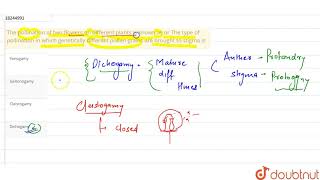 18244991
The pollination of two flowers of different plants is known as or The type of
pollination in which genetically different pollen grains are brought to stigma is
Xenogamy
Geitonogamy
Cleistogamy
Dichogamy
Dichogamy
Mature
diff
times
Anther → Protandry
stigma → Protogyny
Cleistogamy
closed
doubtnut